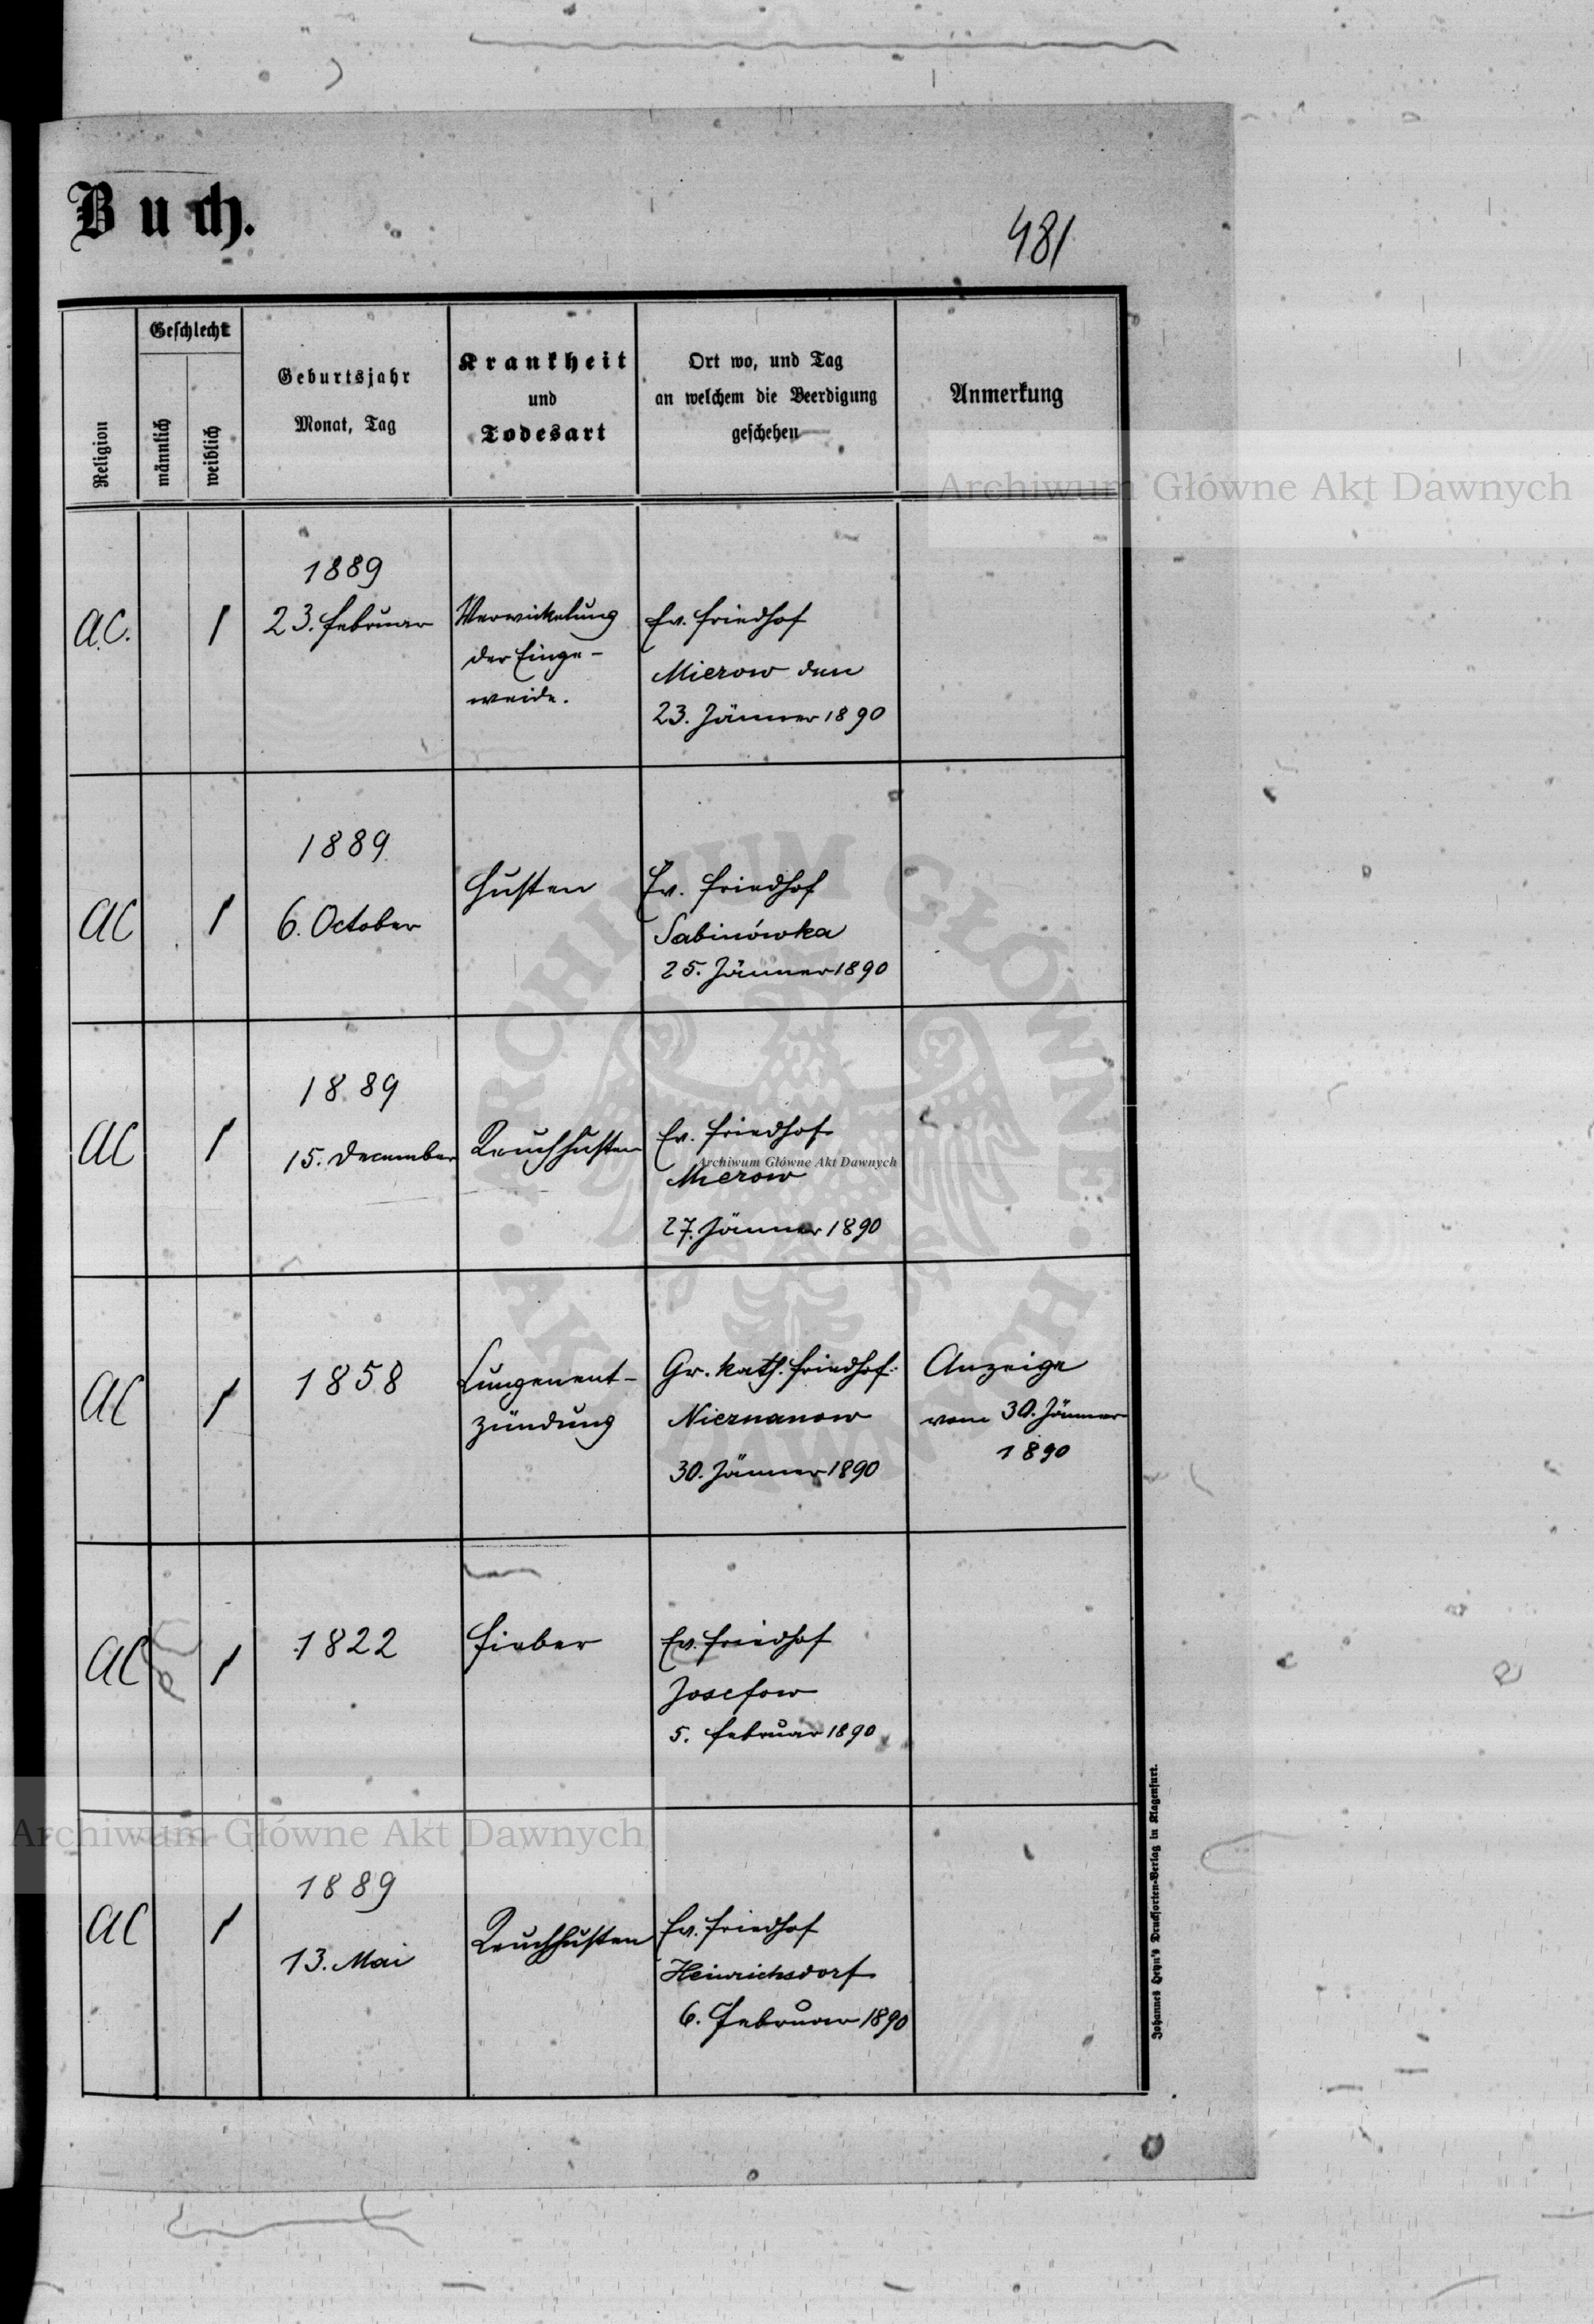 Buch.
481
Religion
Geschlecht
männlich
weiblich
Geburtsjahr
Monat, Tag
Krankheit
und
Todesart
Ort wo, und Tag
an welchem die Beerdigung
geschehen
Anmerkung
Archiwum Główne Akt Dawnych
A.C.
1
1889
23. Februar
Verwickelung
der Einge-
weide.
Ev. Friedhof
Mierow den
23. Jänner 1890
AC
1
1889
6. October
Husten
Ev. Friedhof
Sabinówka
25. Jänner 1890
AC
1
1889
15. December
Keuchhusten
Ev. Friedhof
Archiwum Główne Akt Dawnych
Mierow
27. Jänner 1890
ARCHIWUM GŁÓWNE AKT DAWNYCH
AC
1
1858
Lungenent-
zündung
Gr. kath. Friedhof
Nieznanow
30. Jänner 1890
Anzeige
vom 30. Jänner
1890
AC
1
1822
Fieber
Ev. Friedhof
Josefow
5. Februar 1890
Archiwum Główne Akt Dawnych
AC
1
1889
13. Mai
Keuchhusten
Ev. Friedhof
Heinrichsdorf
6. Februar 1890
Johannes Heyn's Drucksorten-Verlag in Klagenfurt.